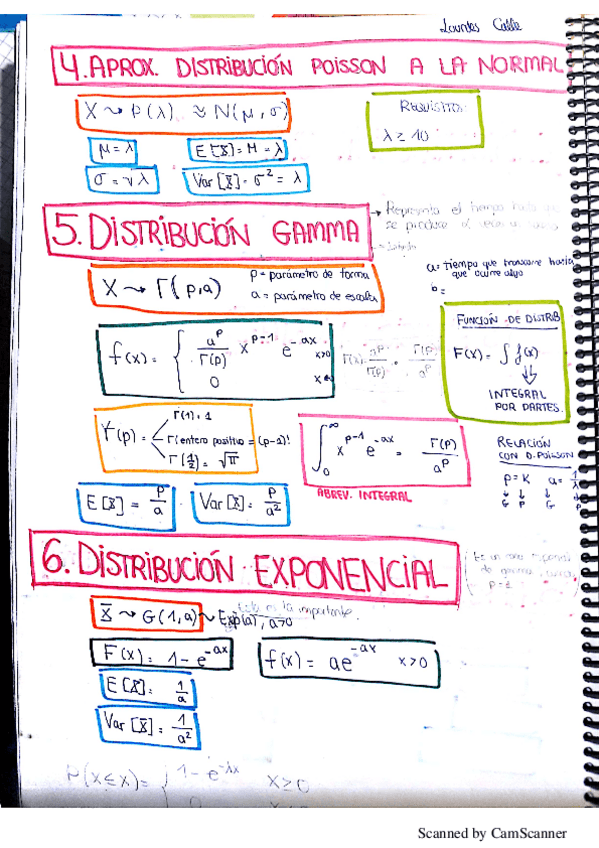 Lourdes Calle
4. APROX. DISTRIBUCIÓN POISSON A LA NORMAL
X ⤳ P(λ) ≈ N(μ, σ)
REQUISITOS:
λ ≥ 10
μ = λ
E[X] = M = λ
σ = √λ
Var[X] = σ² = λ
5. DISTRIBUCIÓN GAMMA
→ Representa el tiempo hasta que
se produce el
X ⤳ Γ(p, a)
P = parámetro de forma
a = parámetro de escala
a = tiempo que transcurre hasta
que ocurre algo
f(x) = { a^p / Γ(p) x^(p-1) e^(-ax) x>0
0
FUNCIÓN DE DISTRIB
F(x) = ∫ f(x)
INTEGRAL
POR PARTES.
Γ(p) =
Γ(1) = 1
Γ(entero positivo) = (p-1)!
Γ(1/2) = √π
∫₀^∞ x^(p-1) e^(-ax) = Γ(p) / a^p
ABREV. INTEGRAL
RELACIÓN
CON D. POISSON
p = K a = 1/λ
↓ ↓ ↓ ↓
G P G P
E[X] = p/a
Var[X] = p/a²
6. DISTRIBUCIÓN EXPONENCIAL
Es un caso
de gamma
p = 1
Esta es la importante.
X ⤳ G(1, a) ~ Exp(a), a>0
F(x) = 1 - e^(-ax)
f(x) = ae^(-ax) x>0
E[X] = 1/a
Var[X] = 1/a²
P(X ≤ x) = { 1 - e^(-λx) x ≥ 0
0
Scanned by CamScanner